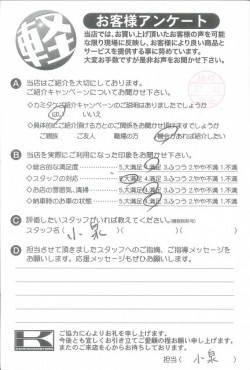 軽
お客様アンケート
当店では、お買い上げ頂いたお客様の声を可能
な限り現場に反映し、お客様により良い商品と
サービスを提供する事に努めています。
大変お手数ですが是非お声をお聞かせ下さい。
A 当店はご紹介を大切にしております。
ご紹介キャンペーンについてお聞かせ下さい。
◇カミタケご紹介キャンペーンのご説明はありましたでしょうか
はい いいえ
◇具体的にご紹介頂ける方とのご関係をお聞かせ頂けますでしょうか
ご親族 ご友人 職場の方 機会があれば紹介したい
B 当店を実際にご利用になった印象をお聞かせ下さい。
◇総合的な満足度 5.大満足 4.満足 3.ふつう 2.やや不満 1.不満
◇スタッフの対応 5.大満足 4.満足 3.ふつう 2.やや不満 1.不満
◇お店の雰囲気、清掃 5.大満足 4.満足 3.ふつう 2.やや不満 1.不満
◇納車時のお車の状態 5.大満足 4.満足 3.ふつう 2.やや不満 1.不満
C 評価したいスタッフがいれば教えてください。(複数回答可)
スタッフ名( 小泉 )
D 担当させて頂きましたスタッフへのご指摘、ご指導メッセージを
お願いします。応援メッセージもぜひお願いします。
K
ご協力に心よりお礼を申し上げます。
今後とも宜しくお引き立てご愛顧の程お願い申し上げます。
またのご来店を心からお待ちしております。
担当( 小泉 )